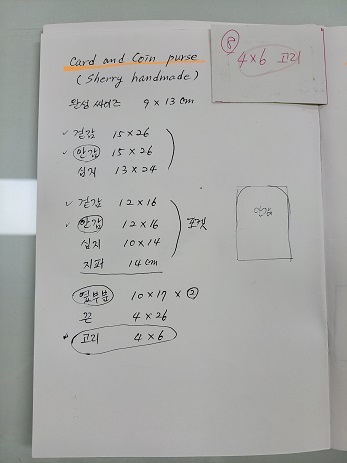 Card and Coin purse
(Sherry handmade)
⑧ 4×6 고리
완성 싸이즈 9×13cm
✓ 겉감 15×26
✓ 안감 15×26
심지 13×24
✓ 겉감 12×16
✓ 안감 12×16
심지 10×14
지퍼 14cm
포켓
안감
옆부분 10×17 × ②
끈 4×26
고리 4×6